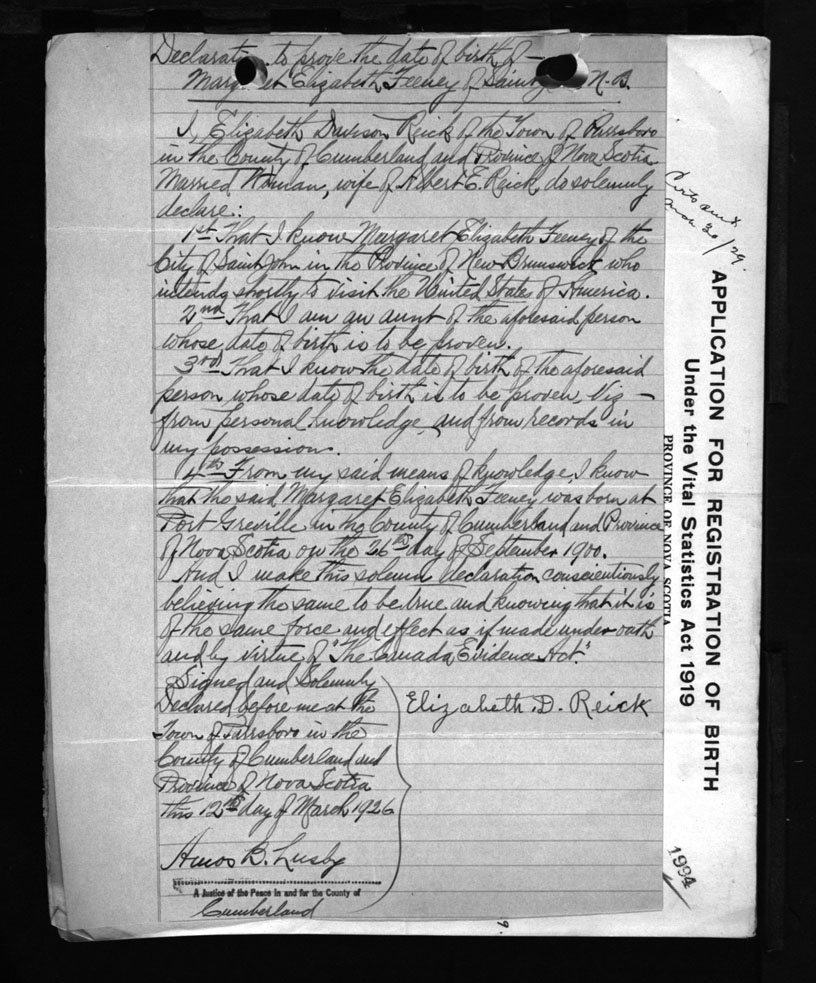 Declaration to prove the date of birth of —
Margaret Elizabeth Feeney of Saint N.B.
I, Elizabeth Davison Reick of the Town of Parrsboro
in the County of Cumberland and Province of Nova Scotia
Married Woman, wife of Albert E. Reick, do solemnly
declare:
1st That I know Margaret Elizabeth Feeney of the
City of Saint John in the Province of New Brunswick, who
intends shortly to visit the United States of America.
2nd That I am an aunt of the aforesaid person
whose date of birth is to be proven.
3rd That I know the date of birth of the aforesaid
person whose date of birth is to be proven, Viz —
from personal knowledge, and from records in
my possession.
4th From my said means of knowledge, I know
that the said Margaret Elizabeth Feeney was born at
Port Greville in the County of Cumberland and Province
of Nova Scotia on the 26th day of September 1900.
And I make this solemn declaration conscientiously
believing the same to be true and knowing that it is
of the same force and effect as if made under oath
and by virtue of "The Canada Evidence Act."
Signed and Solemnly
Declared before me at the
Town of Parrsboro in the
County of Cumberland and
Province of Nova Scotia
this 12th day of March 1926
Elizabeth. D. Reick
Amos B. Lusby
A Justice of the Peace in and for the County of
Cumberland
APPLICATION FOR REGISTRATION OF BIRTH
Under the Vital Statistics Act 1919
PROVINCE OF NOVA SCOTIA
1994
9.